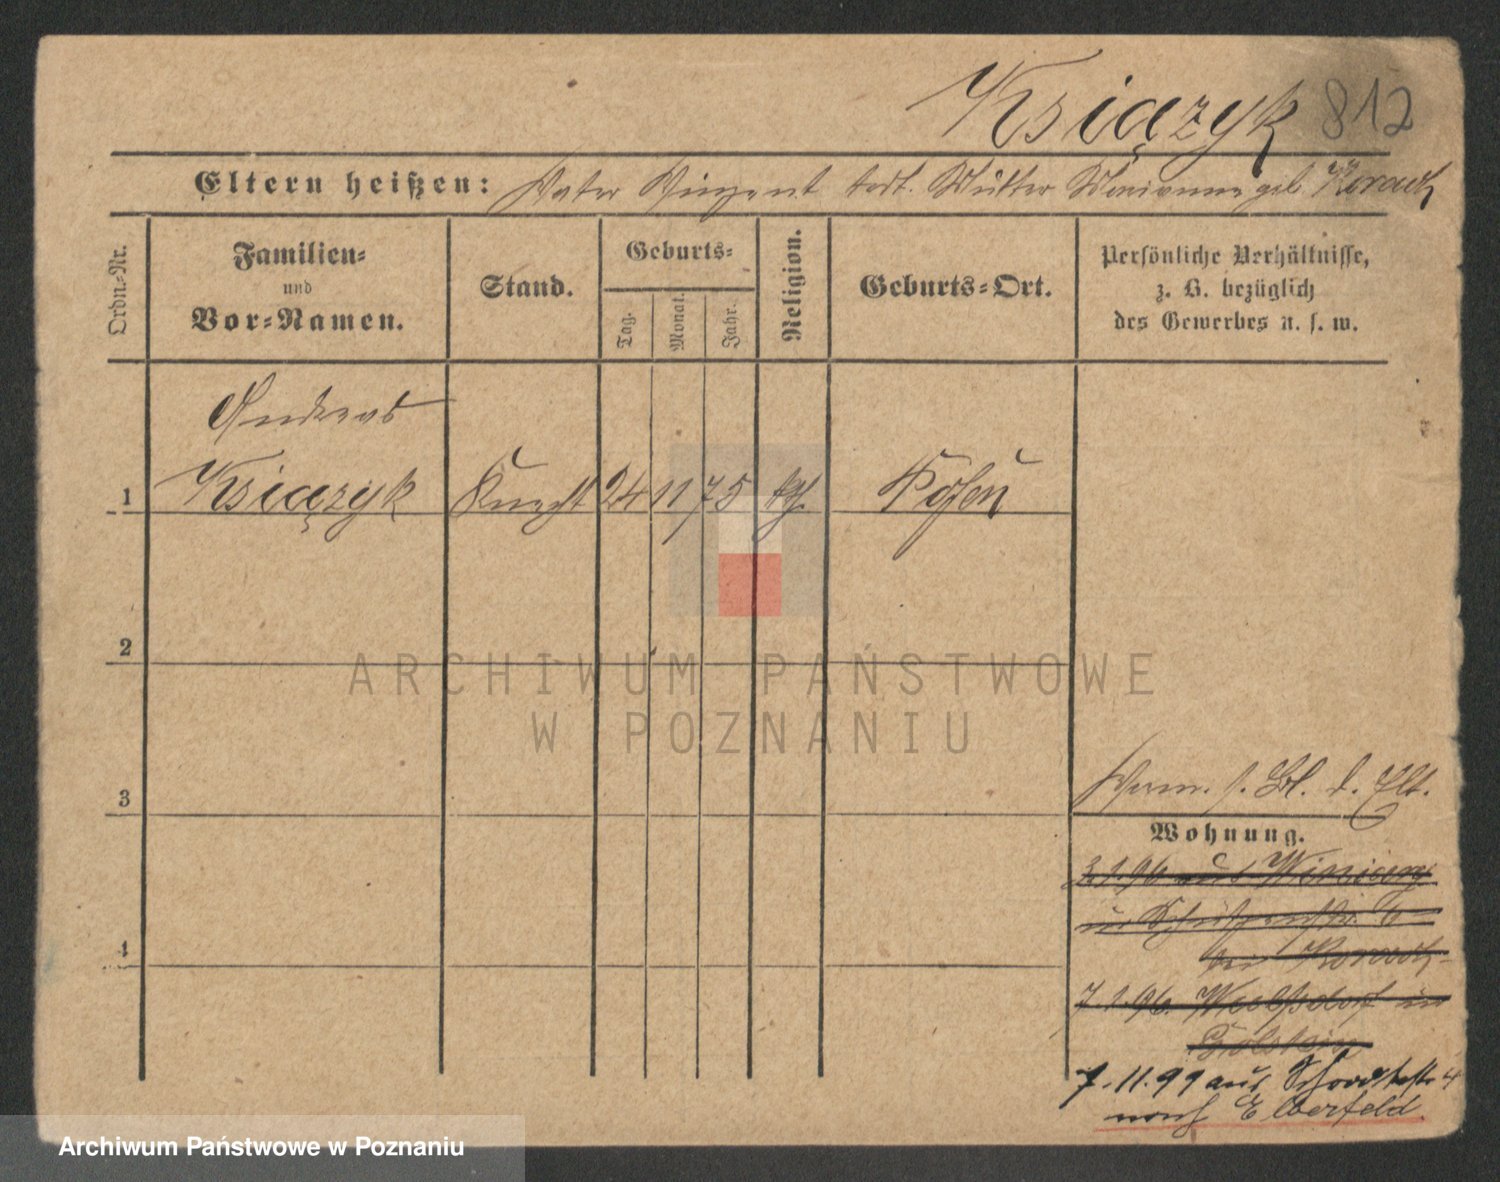 Książyk 812
Eltern heißen: Vater Vinzent todt. Mutter Marianne geb.
Ordn.-Nr.
Familien-
und
Vor-Namen.
Stand.
Geburts-
Tag.
Monat.
Jahr.
Religion.
Geburts-Ort.
Persönliche Verhältnisse,
z. B. bezüglich
des Gewerbes u. s. w.
Andreas
1 Książyk Knecht 24 11 75 kth. Posen
2
3
4
Verm. s. Bl. d. Elt.
Wohnung.
3.1.96 aus Winiary
in
bei
7.1.96. in
7.11.99 aus
nach Elberfeld.
ARCHIWUM PAŃSTWOWE
W POZNANIU
Archiwum Państwowe w Poznaniu